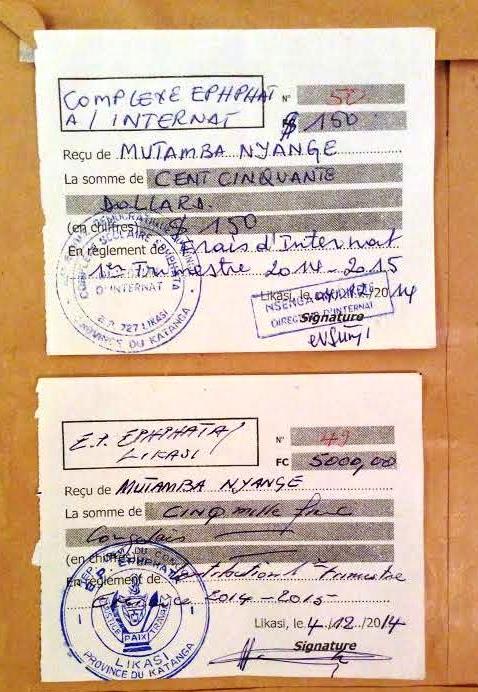 COMPLEXE EPHPHAT
A / INTERNAT
N° 50
$ 150
Reçu de MUTAMBA NYANGE
La somme de CENT CINQUANTE
DOLLARS.
(en chiffres) $ 150
En règlement de Frais d'Internat
1er Trimestre 2014-2015
D'INTERNAT
B.P. 727 LIKASI
PROVINCE DU KATANGA
Likasi, le 04/12/2014
DIRECTEUR D'INTERNAT
Signature
E.P. EPHPHATA/
LIKASI
N° 49
FC 5000,00
Reçu de MUTAMBA NYANGE
La somme de CINQ mille franc
Congolais
(en chiffres)
En règlement de Contribution 1er trimestre
2014-2015
E.P. EPHPHATA
JUSTICE PAIX TRAVAIL
LIKASI
PROVINCE DU KATANGA
Likasi, le 4./12./2014
Signature